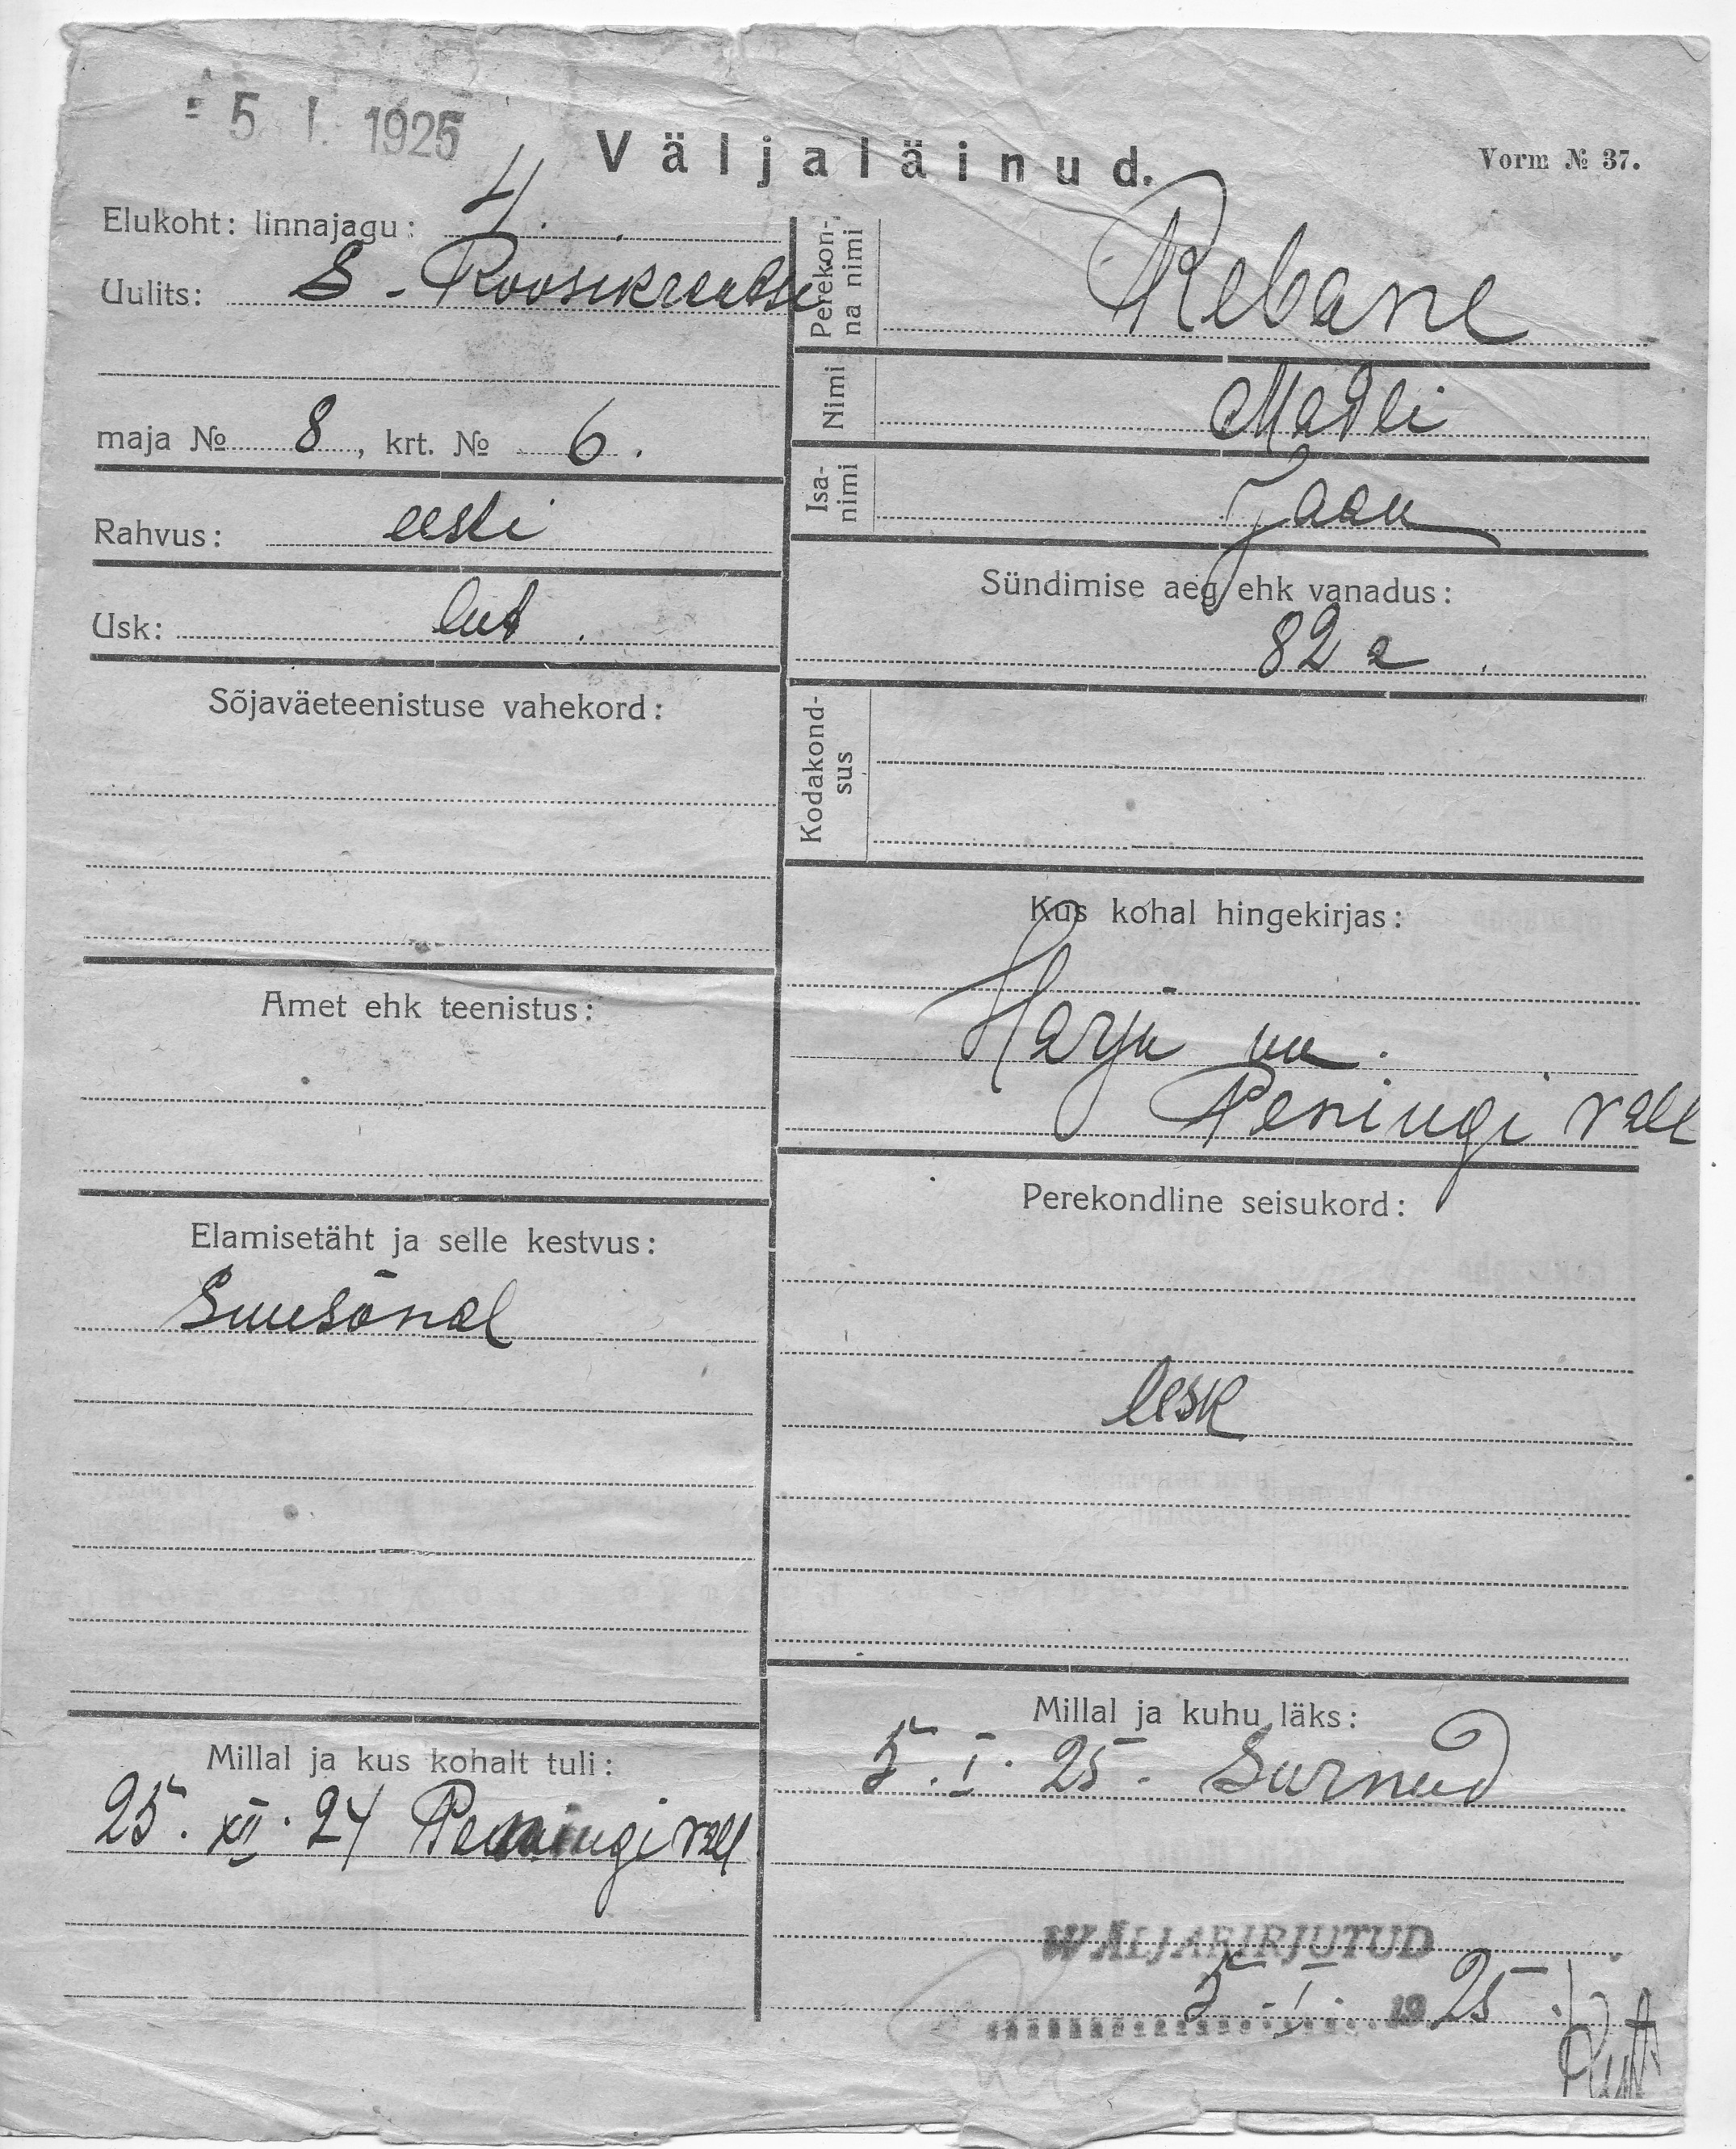 5 I. 1925
Väljaläinud.
Vorm № 37.
Elukoht: linnajagu: 4.
Uulits: S-Roosikrantsi
maja № 8, krt. № 6.
Rahvus: eesti
Usk: lut.
Sõjaväeteenistuse vahekord:
Amet ehk teenistus:
Elamisetäht ja selle kestvus:
Suusõnal
Millal ja kus kohalt tuli:
25. XII. 24 Peningi vall
Perekon-
na nimi
Rebane
Nimi
Madli
Isa-
nimi
Jaan
Sündimise aeg ehk vanadus:
82 a.
Kodakond-
sus
Kus kohal hingekirjas:
Harju
Peningi vall
Perekondline seisukord:
lesk
Millal ja kuhu läks:
5. I. 25. Surnud
WÄLJAKIRJUTUD
5. I. 1925.